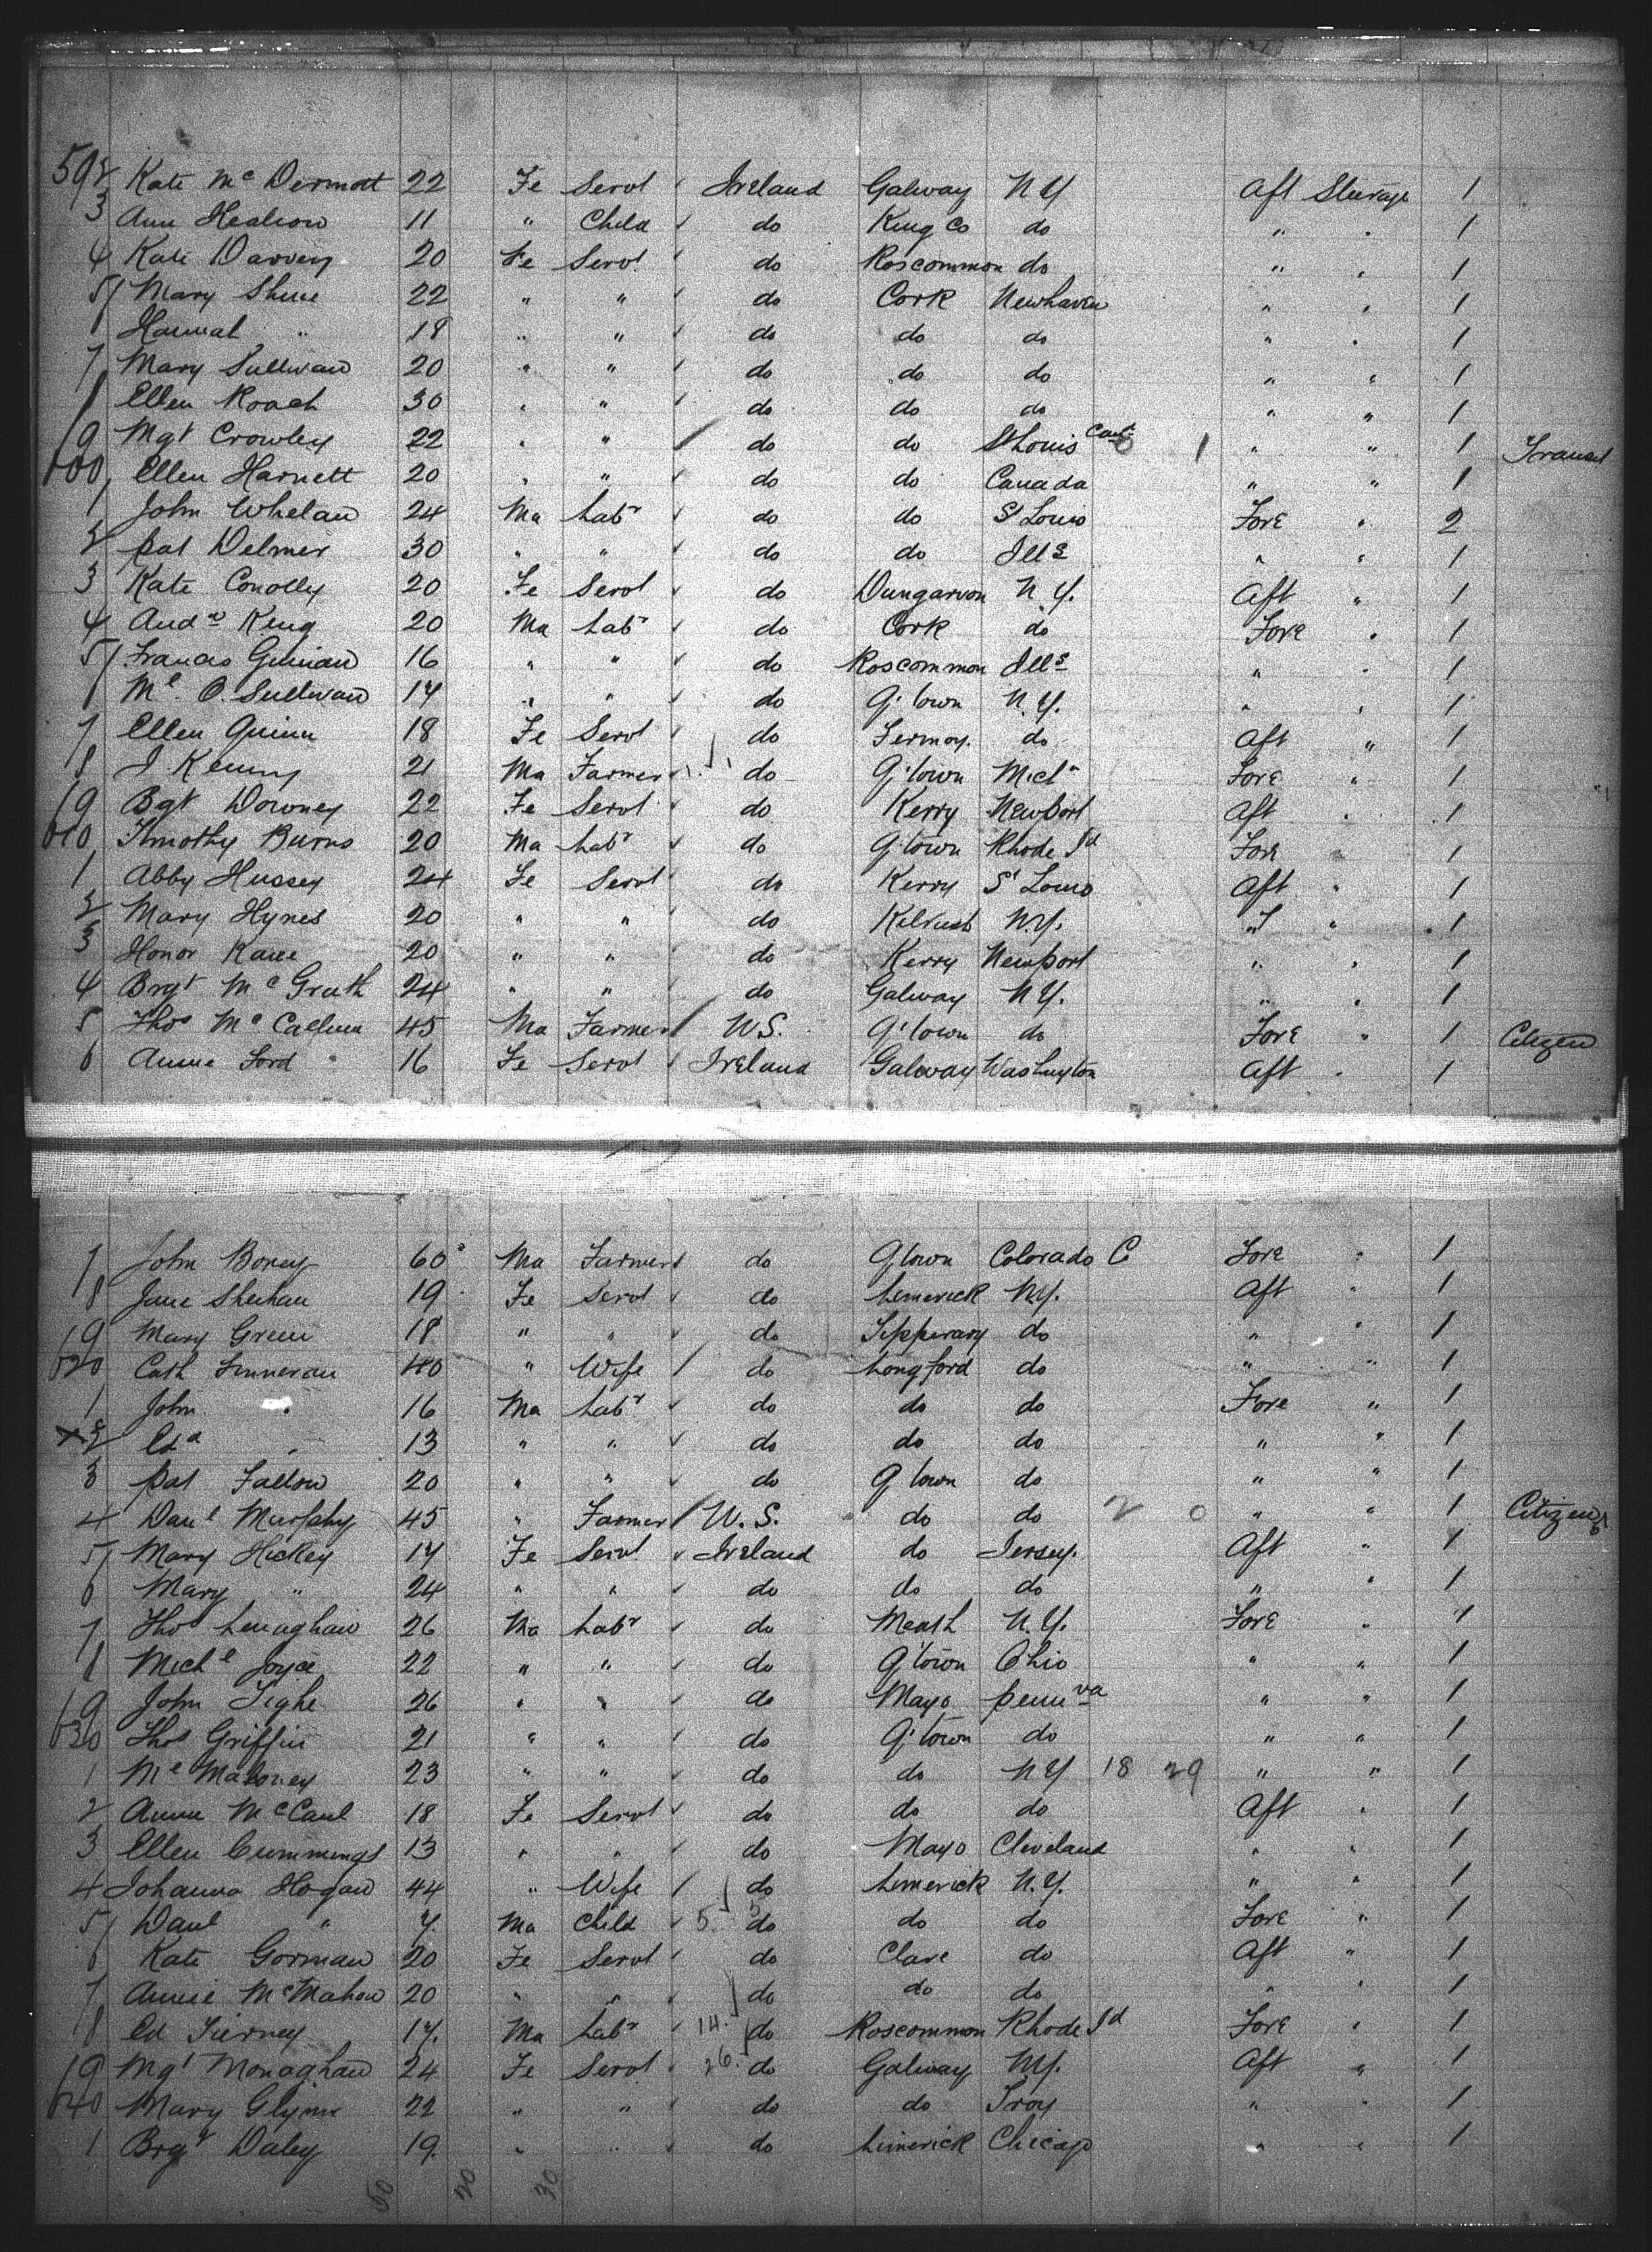 592 Kate McDermott 22 Fe Servt Ireland Galway N Y Aft Steerage 1
3 Ann 11 " Child do King Co do " " 1
4 Kate 20 Fe Servt do Roscommon do " " 1
5 Mary Shine 22 " " do Cork Newhaven " " 1
6 Hannah " 18 " " do do do " " 1
7 Mary Sullivan 20 " " do do do " " 1
8 Ellen Roach 30 " " do do do " " 1
9 Mgt Crowley 22 " " do do St Louis 1 " " 1 Transit
600 Ellen Harnett 20 " " do do Canada " " 1
1 John Whelan 24 Ma Labr do do St Louis Fore " 2
2 Pat Delmer 30 " " do do Ills " " 1
3 Kate Conolly 20 Fe Servt do Dungarvon N.Y. Aft " 1
4 Andw King 20 Ma Labr do Cork do Fore " 1
5 Francis 16 " " do Roscommon Ills " " 1
6 Ml O. Sullivan 14 " " do Q'town N.Y. " " 1
7 Ellen Quinn 18 Fe Servt do Fermoy do Aft " 1
8 J. Kenny 21 Ma Farmer do Q'town Michn Fore " 1
9 Bgt Downey 22 Fe Servt do Kerry Newport Aft " 1
610 Timothy Burns 20 Ma Labr do Q'town Rhode Id Fore " 1
1 Abby Hussey 24 Fe Servt do Kerry St Louis Aft " 1
2 Mary Hynes 20 " " do Kilrush N.Y. " " 1
3 Honor Kane 20 " " do Kerry Newport " " 1
4 Brgt McGrath 24 " " do Galway N.Y. " " 1
5 Thos McCallum 45 Ma Farmer U.S. Q'town do Fore " 1 Citizen
6 Annie Ford 16 Fe Servt Ireland Galway Washington Aft " 1
7 John 60 Ma Farmer do Qtown Colorado C Fore " 1
8 Jane Sheehan 19 Fe Servt do Limerick N.Y. Aft " 1
9 Mary Green 18 " " do Tipperary do " " 1
620 Cath Finneran 40 " Wife do Longford do " " 1
1 John " 16 Ma Labr do do do Fore " 1
x 2 Ed " 13 " " do do do " " 1
3 Pat Fallon 20 " " do Q'town do " " 1
4 Danl Murphy 45 " Farmer U.S. do do 2 0 " " 1 Citizen
5 Mary Hickey 17 Fe Servt Ireland do Jersey. Aft " 1
6 Mary " 24 " " do do do " " 1
7 Thos Lenaghan 26 Ma Labr do Meath N.Y. Fore " 1
8 Michl Joyce 22 " " do Q'town Ohio " " 1
9 John Tighe 26 " " do Mayo Pennva " " 1
630 Thos Griffin 21 " " do Q'town do " " 1
1 Ml Mahoney 23 " " do do N.Y 18 29 " " 1
2 Annie McCaul 18 Fe Servt do do do Aft " 1
3 Ellen Cummings 13 " " do Mayo Cleveland " " 1
4 Johanna Hogan 44 " Wife do Limerick N.Y. " " 1
5 Danl " 7. Ma Child 5. 5 do do do Fore " 1
6 Kate Gorman 20 Fe Servt do Clare do Aft " 1
7 Annie McMahon 20 " " do do do " " 1
8 Ed Tierney 17. Ma Labr 14. do Roscommon Rhode Id Fore " 1
9 Mgt Monaghan 24 Fe Servt 26. do Galway N.Y. Aft " 1
640 Mary Glynn 22 " " do do Troy " " 1
1 Brgt Daley 19. " " do Limerick Chicago " " 1
50 20 30